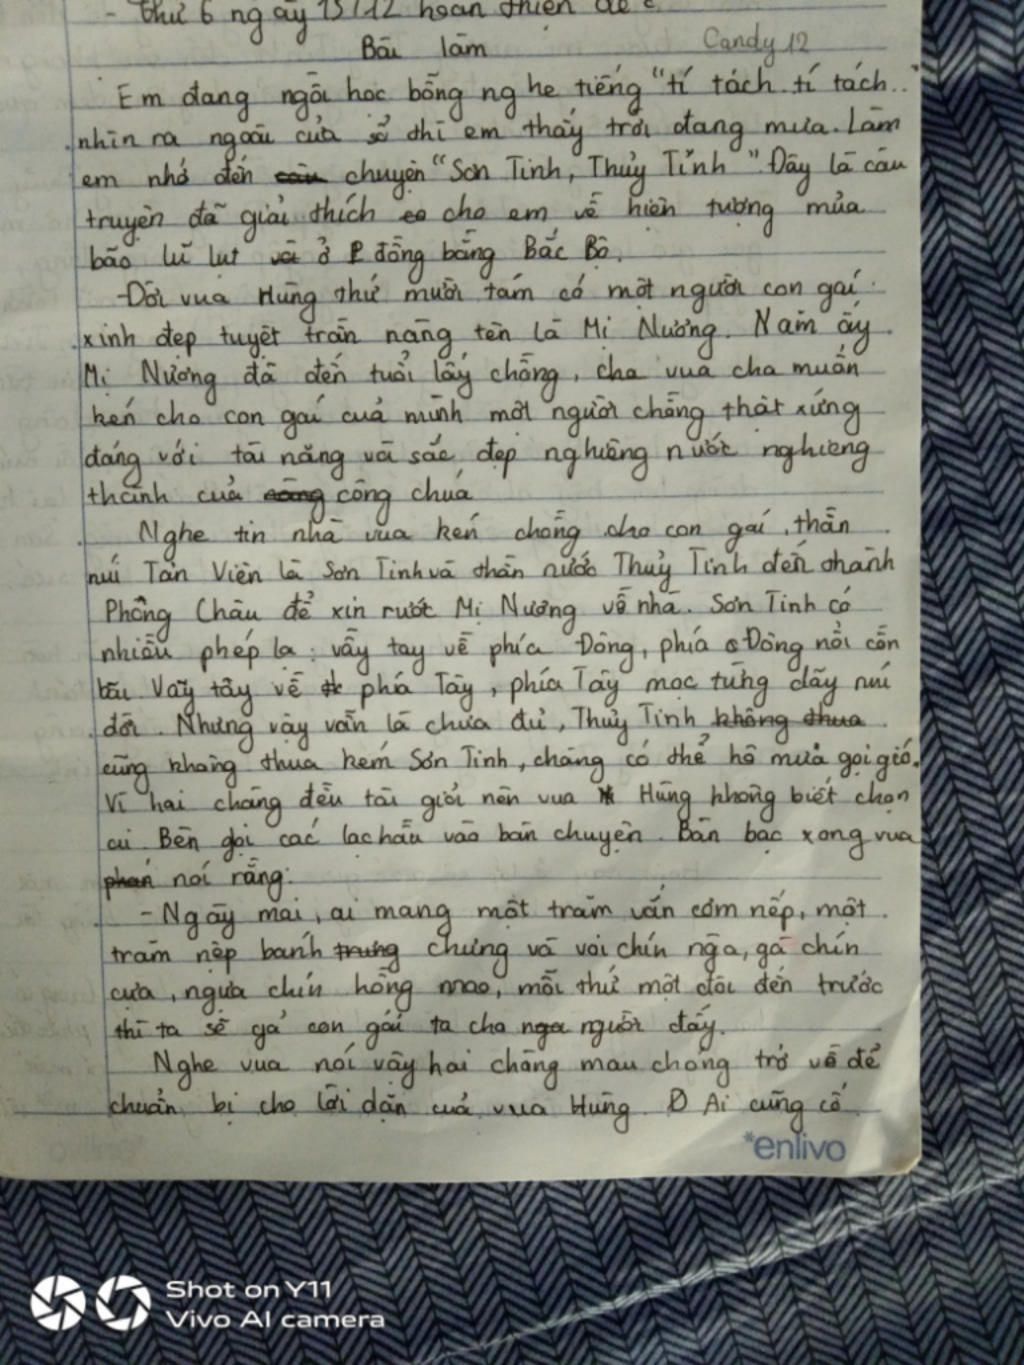 - Thứ 6 ngày 15/12 hoàn thiện đề
Bài làm Candy 12
Em đang ngồi học bỗng nghe tiếng "tí tách tí tách..
nhìn ra ngoài cửa sổ thì em thấy trời đang mưa. Làm
em nhớ đến chuyện "Sơn Tinh, Thủy Tinh". Đây là câu
truyện đã giải thích cho em về hiện tượng mùa
bão lũ lụt ở đồng bằng Bắc Bộ.
Đời vua Hùng thứ mười tám có một người con gái
xinh đẹp tuyệt trần nàng tên là Mị Nương. Năm ấy
Mị Nương đã đến tuổi lấy chồng, cha vua cha muốn
kén cho con gái của mình một người chồng thật xứng
đáng với tài năng và sắc đẹp nghiêng nước nghiêng
thành của công chúa
Nghe tin nhà vua kén chồng cho con gái, thần
núi Tản Viên là Sơn Tinh và thần nước Thủy Tinh đến thành
Phong Châu để xin rước Mị Nương về nhà. Sơn Tinh có
nhiều phép lạ: vẫy tay về phía Đông, phía Đông nổi cồn
bãi Vẫy tây về phía Tây, phía Tây mọc từng dãy núi
đồi. Nhưng vậy vẫn là chưa đủ, Thủy Tinh không thua
cũng không thua kém Sơn Tinh, chàng có thể hô mưa gọi gió.
Vì hai chàng đều tài giỏi nên vua Hùng không biết chọn
ai Bèn gọi các lạc hầu vào bàn chuyện. Bàn bạc xong vua
phán nói rằng:
- Ngày mai, ai mang một trăm ván cơm nếp, một
trăm nệp bánh trưng chưng và voi chín ngà, gà chín
cựa, ngựa chín hồng mao, mỗi thứ một đôi đến trước
thì ta sẽ gả con gái ta cho người đấy.
Nghe vua nói vậy hai chàng mau chóng trở về để
chuẩn bị cho lời dặn của vua Hùng. Ai cũng cố
*enlivo
Shot on Y11
Vivo AI camera